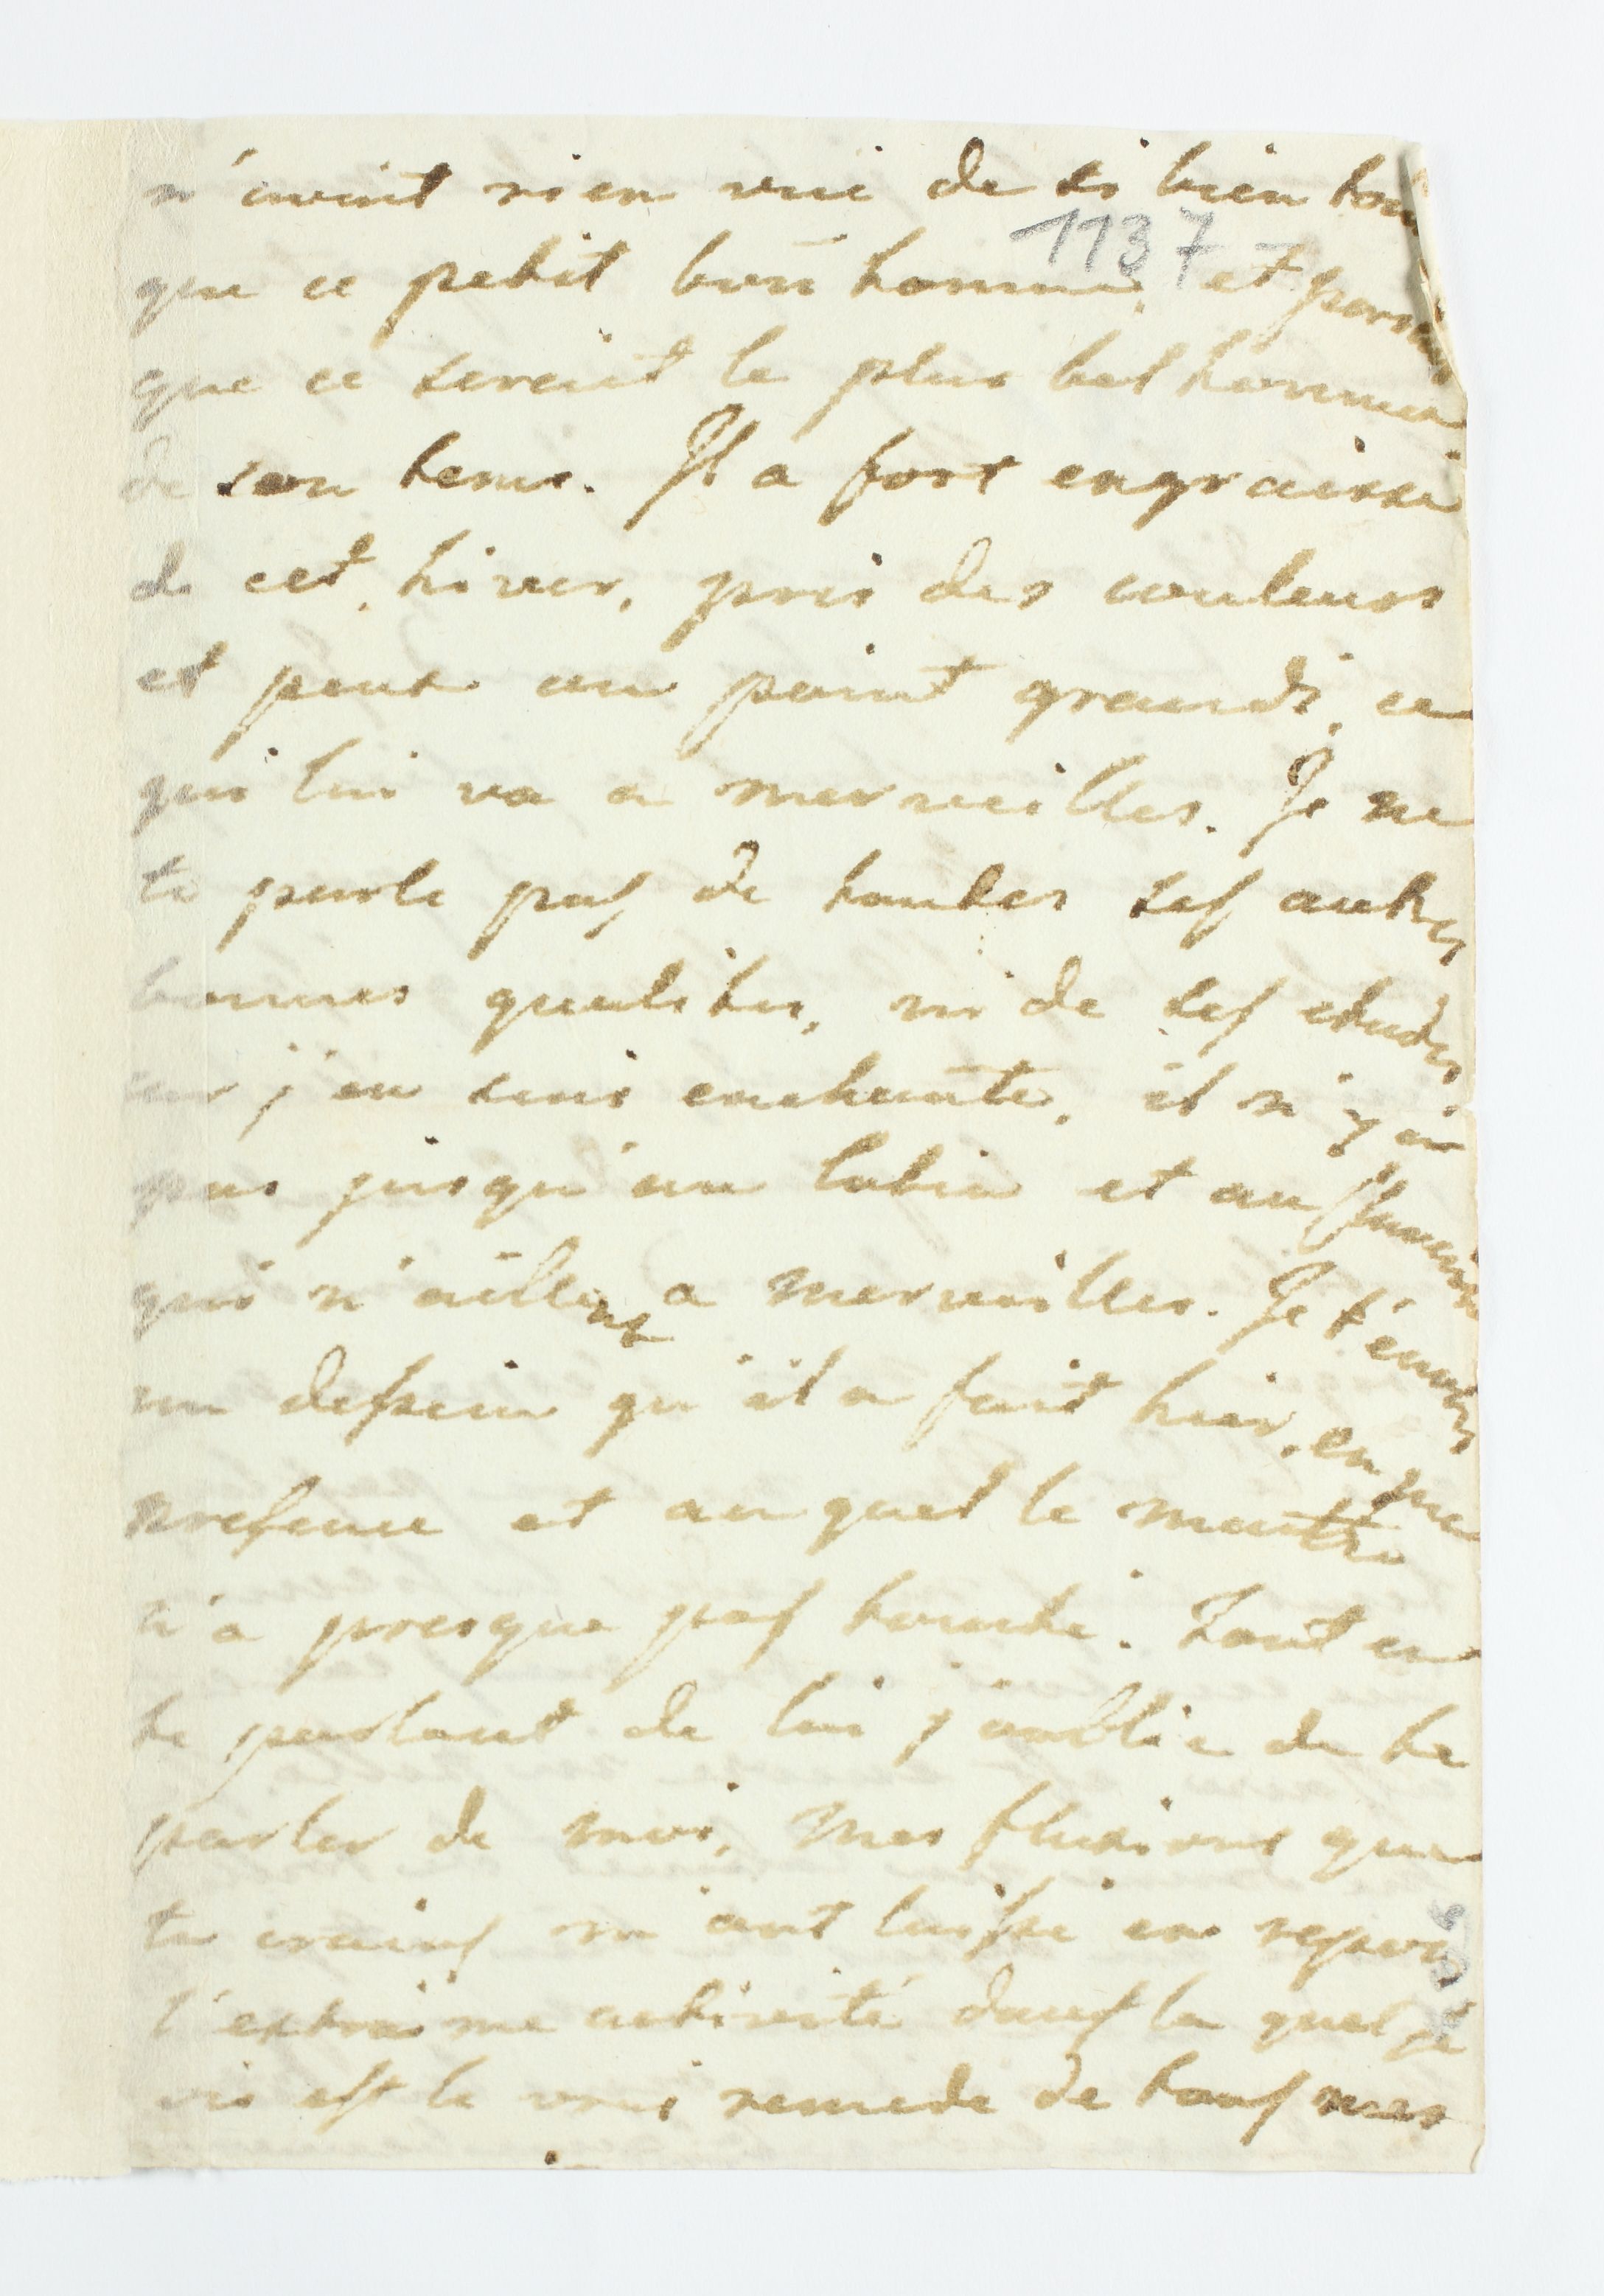 n'avoit rien vuë de si bien
1137
que ce petit bon homme, et
que ce seroit le plus bel homme
de son tems. Il a fort engraissé
de cet hiver, pris des couleurs
et peut un point grandi, ce
qui lui va a merveilles. Je ne
te parle pas de toutes ses autres
bonnes qualités, ni de ses etudes,
car j'en suis enchanté, il n'y a
pas jusqu'au latin et au
qui n'aillent a merveilles. Je t'envois
un dessein qu'il a fait hier, en ma
presence et au quel le maitre
n'a presque pas touché. Tout en
te parlant de lui j'oublie de te
parler de moi, mes fluxions que
tu crains m'ont laissé en repos,
l'extreme activité dans la quel je
vis est le vrai remede de tous mes